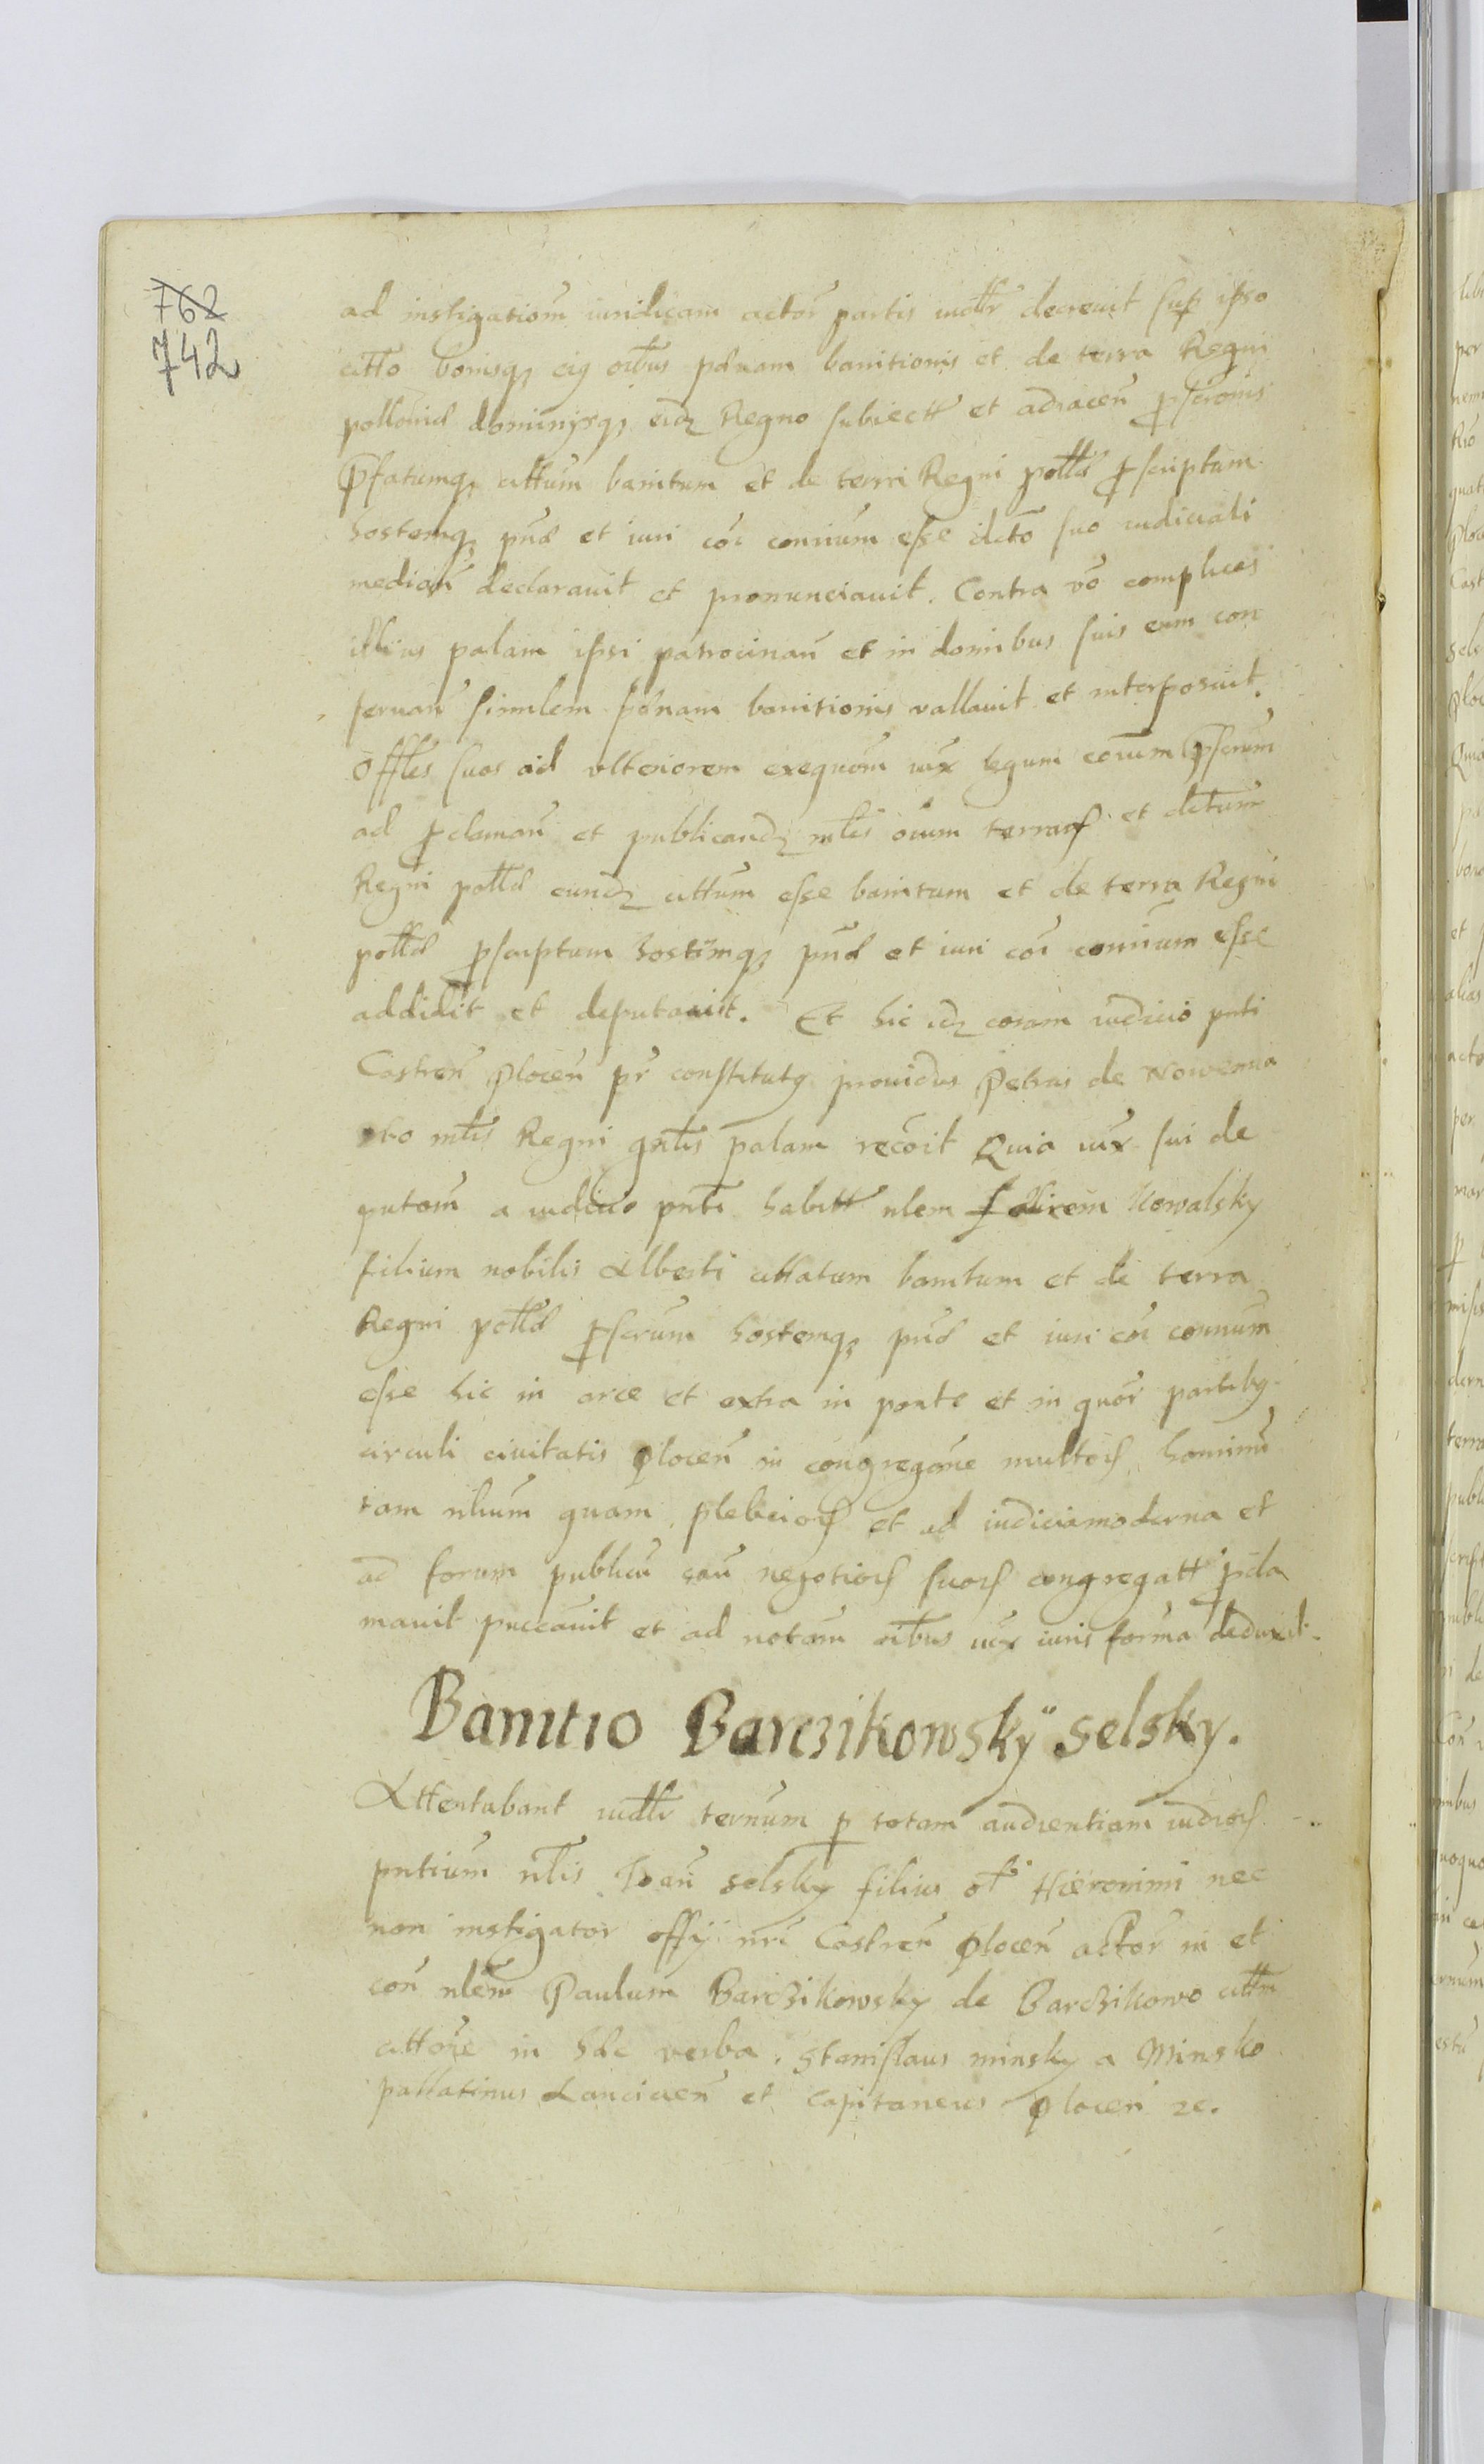 762
742
ad instigationẽ iuridicam actor̃ partis iudl̃r decreuit sup ipso
citt̃o bonisq₃ eiꝯ oĩbus pęnam banitionis et de terra Regni
polloniæ dominijsq₃ eidẽ Regno subiectt et adiacen̄ ꝓscronis
p̃fatumq₃ citt̃um banitum et de terra Regni poll̃æ ꝓscriptum
hostemq₃ pñæ et iuri cõi conuium esse dicto suo iudiciali
median̄ declarauit et pronunciauit. Contra võ complices
illius palam ipsi patrocinan̄ et in domibus suis eum con
seruan̄ similem pęnam banitionis vallauit et interposuit.
Offles suos ad vlteriorem exequõm iux̃ legum eorum p̃scrũm
ad ꝓclaman̄ et publicandẽ ml̃is oium terrarꝝ et detũm
Regni poll̃æ eundẽ citt̃um esse banitum et de terra Regni
poll̃æ ꝓscriptum hostẽmq₃ pñæ et iuri cõi conuium esse
addidit et deputauit. Et hic idẽ coram iudicio pñti
Castren̄ plocen̄ pr̃ constitutꝯ prouidus Petrus de Nowe
mĩlis Regni gñlis palam recõit Quia iux̃ sui de
putom̃ a iudicio pñti habitt nlem Kowalsky
filium nobilis Alberti cittatum banitum et de terra
Regni poll̃æ ꝓscrũm hostemq₃ pñæ et iuri cõi conuium
esse hic in arce et extra in ponte et in quor̃ partibꝯ
circuli ciuitatis plocen̄ in congregõne multorꝝ hominũ
tam nliũm quam plebeiorꝝ et ad iudicia moderna et
ad forum publicũ cau̅ negotiorꝝ suorꝝ congregatt ꝓcla
mauit puccauit et ad notam̃ oĩbus iux̃ iuris formã deduxit.
Banitio Barczikowskÿ selsky.
Attentabant iudl̃r ternũm ꝑ totam audientiam iudiorꝝ
pntium nl̃is Ioan̄ selsky filius ol̃ Hieronimi nec
non instigator offÿ nri Castren̄ plocen̄ actor̃ in et
con̄ nlẽm Paulum Barczikowsky de Barczikowo citt̃m
cittoñe in hæc verba. Stanislaus minsky a Minsko
pallatinus Lancicien̄ et Capitaneus plocen̄ ꝛc.